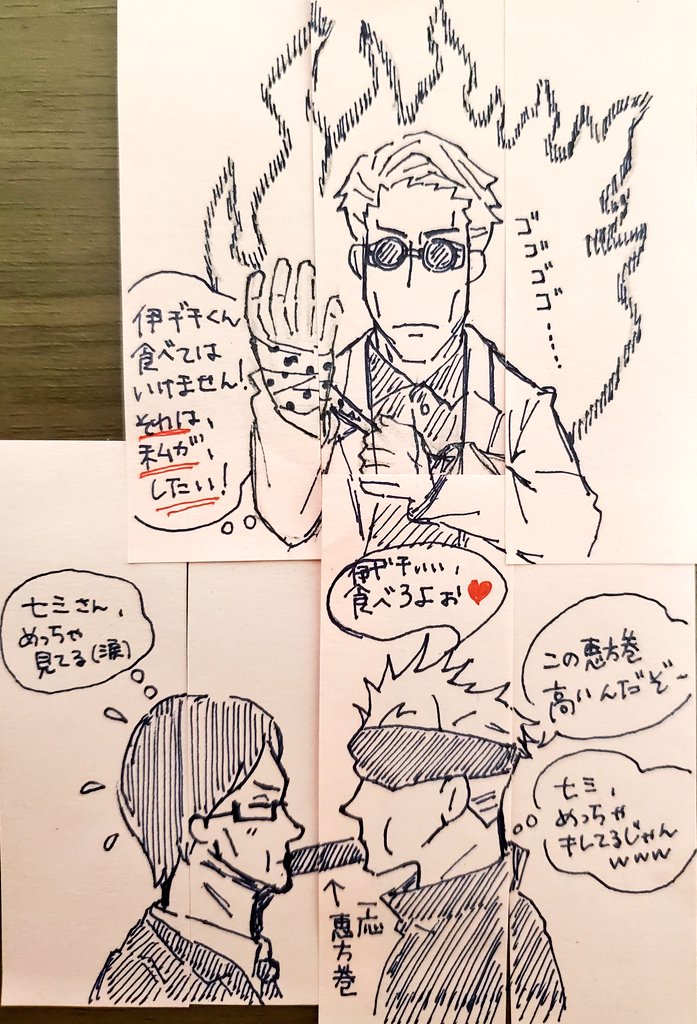 ゴゴゴゴ……
伊ヂチくん
食べては
いけません!
それは、
私が、
したい!
伊ヂチいい、
食べろよぉ♥
七ミさん、
めっちゃ
見てる(涙)
この恵方巻
高いんだぞ〜
七ミ、
めっちゃ
キレてるじゃん
www
↑一応
恵方巻